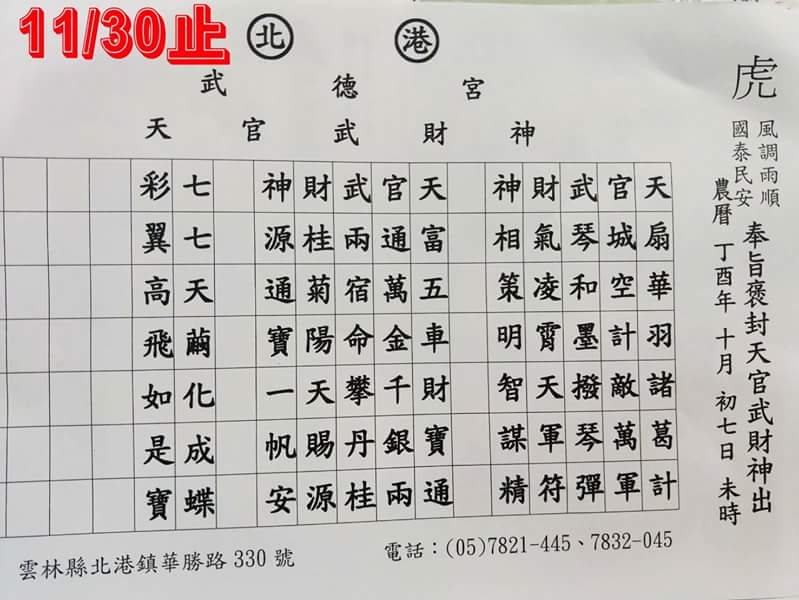 11/30止
北 港
武德宮
天官武財神
虎
風調雨順
國泰民安
奉旨褒封天官武財神出
農曆 丁酉年 十月 初七日 未時
天扇華羽諸葛計
官城空計敵萬軍
武琴和墨撥琴彈
財氣凌霄天軍符
神相策明智謀精
天富五車財寶通
官通萬金千銀兩
武兩宿命攀丹桂
財桂菊陽天賜源
神源通寶一帆安
七七天繭化成蝶
彩翼高飛如是寶
雲林縣北港鎮華勝路 330 號
電話：(05)7821-445、7832-045